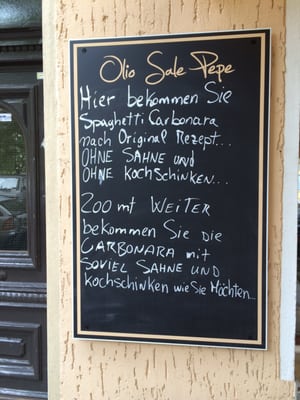 Olio Sale Pepe
Hier bekommen Sie
Spaghetti Carbonara
nach Original Rezept...
OHNE SAHNE und
OHNE KOCHSCHINKEN...
200 mt WEITER
bekommen Sie die
CARBONARA mit
SOVIEL SAHNE UND
kochschinken wie Sie Möchten...